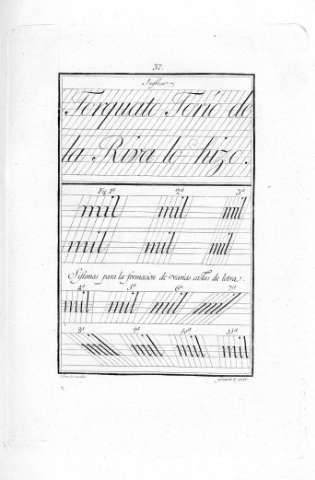 37.
Inglesa
Torquato Torío de
la Riva lo hizo.
Fig. 1ª 2ª 3ª
mil mil mil
mil mil mil
Sistemas para la formacion de varias castas de letra.
4ª 5ª 6ª 7ª
mil mil mil mil
8ª 9ª 10ª 11ª
mil mil mil mil